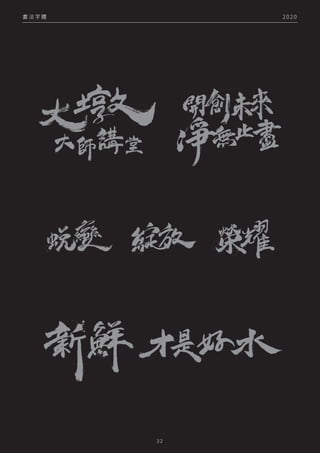 書法字體
2020
大墩
大師講堂
開創未來
淨無止盡
蛻變
綻放
榮耀
新鮮 才是好水
32